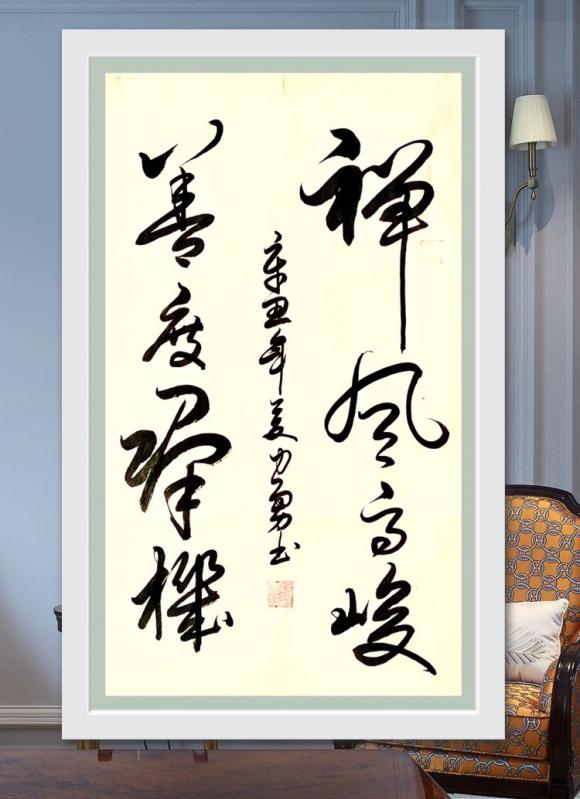 禅风高峻
善度群機
辛丑年勇书